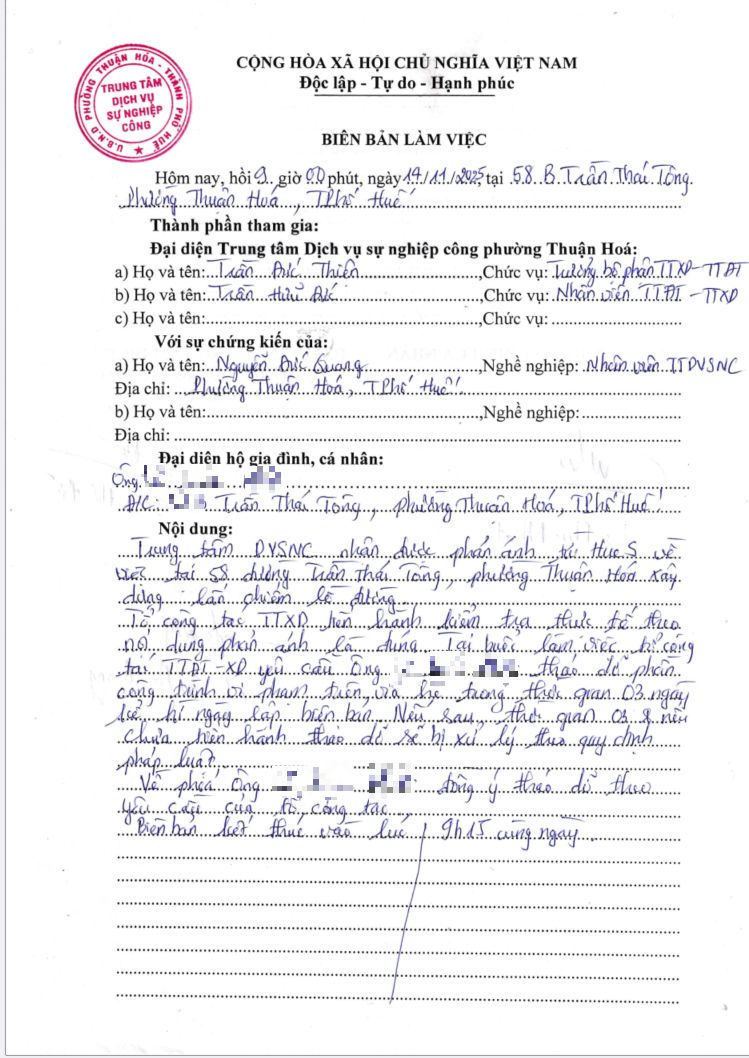 U.B.N.D PHƯỜNG THUẬN HÓA - THÀNH PHỐ HUẾ
TRUNG TÂM
DỊCH VỤ
SỰ NGHIỆP
CÔNG
CỘNG HÒA XÃ HỘI CHỦ NGHĨA VIỆT NAM
Độc lập - Tự do - Hạnh phúc
BIÊN BẢN LÀM VIỆC
Hôm nay, hồi 9 giờ 00 phút, ngày 14/11/2025, tại 58 B Trần Thái Tông
Phường Thuận Hoá, TPhố Huế
Thành phần tham gia:
Đại diện Trung tâm Dịch vụ sự nghiệp công phường Thuận Hoá:
a) Họ và tên: Trần Đức Thiên, Chức vụ: Trưởng bộ phận TTXD-TTĐT
b) Họ và tên: Trần Hữu Đức, Chức vụ: Nhân viên TTĐT-TTXD
c) Họ và tên:, Chức vụ:
Với sự chứng kiến của:
a) Họ và tên: Nguyễn Đức Quang, Nghề nghiệp: Nhân viên TTDVSNC
Địa chỉ: Phường Thuận Hoá, TPhố Huế
b) Họ và tên:, Nghề nghiệp:
Địa chỉ:
Đại diện hộ gia đình, cá nhân:
Ông
Đ/C: Trần Thái Tông, phường Thuận Hoá, TPhố Huế
Nội dung:
Trung tâm DVSNC nhận được phản ánh từ Hue.S về
việc tại 58 đường Trần Thái Tông, phường Thuận Hoá xây
dựng lấn chiếm lề đường.
Tổ công tác TTXD tiến hành kiểm tra thực tế theo
nội dung phản ánh là đúng. Tại buổi làm việc tổ công
tác TTĐT-XD yêu cầu Ông tháo dỡ phần
công trình vi phạm trên vỉa hè trong thời gian 03 ngày
kể từ ngày lập biên bản. Nếu sau thời gian 03 nếu
chưa tiến hành tháo dỡ sẽ bị xử lý theo quy định
pháp luật.
Về phía Ông đồng ý tháo dỡ theo
yêu cầu của tổ công tác
Biên bản kết thúc vào lúc 9h15 cùng ngày